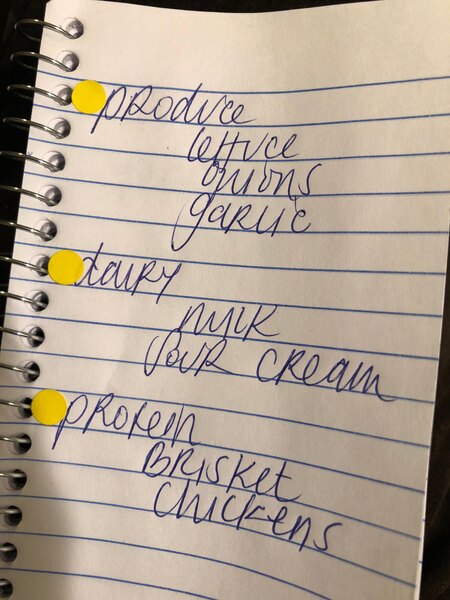 produce
lettuce
onions
garlic
dairy
milk
sour cream
protein
Brisket
chickens